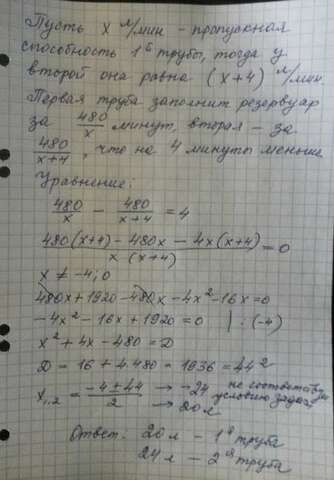 Пусть x л/мин - пропускная
способность 1й трубы, тогда у
второй она равна (x+4) л/мин
Первая труба заполнит резервуар
за 480/x минут, вторая - за
480/x+4, что на 4 минуты меньше
Уравнение:
480/x - 480/x+4 = 4
480(x+4) - 480x - 4x(x+4)/x(x+4) = 0
x ≠ -4; 0
480x + 1920 - 480x - 4x² - 16x = 0
-4x² - 16x + 1920 = 0 | : (-4)
x² + 4x - 480 = D
D = 16 + 4·480 = 1936 = 44²
x₁,₂ = -4±44/2 → -24 не соответств.
→ 20 л условию задачи
Ответ: 20 л - 1я труба
24 л - 2ая труба